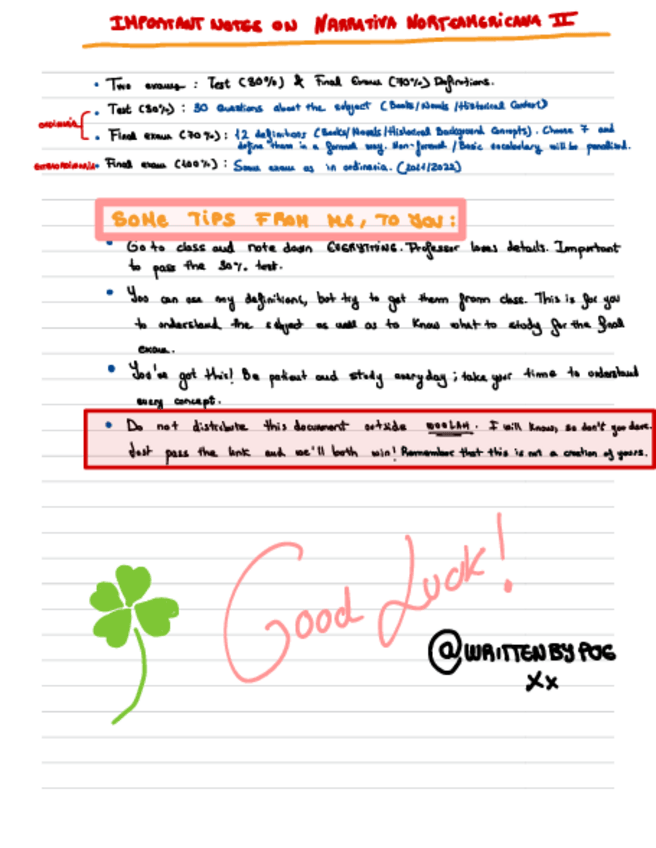 IMPORTANT NOTES ON NARRATIVA NORTEAMERICANA II
• Two exams : Test (30%) & Final Exam (70%) Definitions.
• Test (30%) : 30 Questions about the subject (Books/Novels/Historical Context)
ordinaria
• Final exam (70%) : 12 definitions (Books/Novels/Historical Background Concepts). Choose 7 and
define them in a formal way. Non-formal / Basic vocabulary will be penalised.
extraordinaria • Final exam (100%) : Same exam as in ordinaria. (2021/2022)
SOME TIPS FROM ME, TO YOU:
• Go to class and note down EVERYTHING. Professor loves details. Important
to pass the 30% test.
• You can use my definitions, but try to get them from class. This is for you
to understand the subject as well as to know what to study for the final
exam.
• You've got this! Be patient and study everyday ; take your time to understand
every concept.
• Do not distribute this document outside WOOLAH. I will know, so don't you dare.
Just pass the link and we'll both win! Remember that this is not a creation of yours.
Good Luck!
@WRITTENBYPOE
Xx